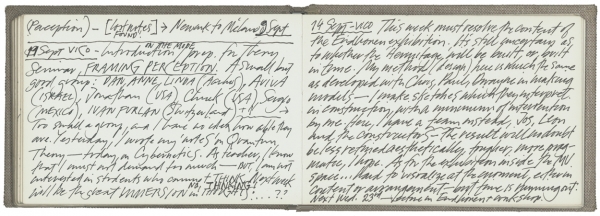 (Perception) – [Lost notes] → Newark to Milano 9 Sept
FOUND!
14 Sept – Vico – Introduction / prep. to Theory
Seminar, FRAMING PERCEPTION. A small but
good group: DAN, ANNE, LINDA (), AVIVA
(ISRAEL), Jonathan (USA), Chuck (USA), Sergio
(MEXICO), IVAN FURLAN (Switzerland)
Too small a group, and I have no idea how able they
are. Yesterday, I wrote my notes on Quantum
Theory — today on Cybernetics. As teacher, I know
that I must not demand too much — but I am not
interested in students who cannot THINK. Next week
NO, THINKING!
will be the great IMMERSION in THOUGHTS ....??
14 Sept – VICO This week must resolve the content of
the Eindhoven exhibition. It is still uncertain as
to whether the Hermitage will be built or built
in time. My method of design here is much the same
as developed with Chris, Paul, Dwayne in making
models — I make sketches which they interpret
in construction, with a minimum of intervention
by me. Here, I have a team instead, Jos, Leon
and the constructors – the result will no doubt
be less refined aesthetically, tougher, more prag-
matic, I hope. As for the exhibition inside the
space... hard to visualize at the moment, either in
content or arrangement – but time is running out.
Next Wed. 23rd — lecture in Eindhoven workshop.